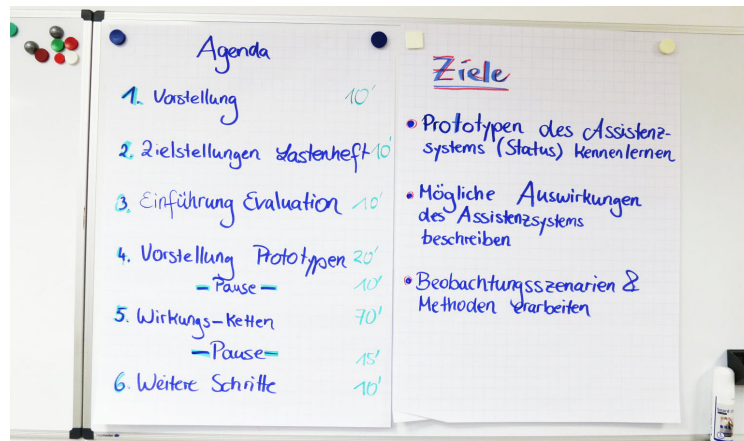 Agenda
1. Vorstellung 10'
2. Zielstellungen Lastenheft 10'
3. Einführung Evaluation 10'
4. Vorstellung Prototypen 20'
– Pause – 10'
5. Wirkungs-Ketten 70'
– Pause – 15'
6. Weitere Schritte 10'
Ziele
• Prototypen des Assistenz-
systems (Status) kennenlernen
• Mögliche Auswirkungen
des Assistenzsystems
beschreiben
• Beobachtungsszenarien &
Methoden erarbeiten